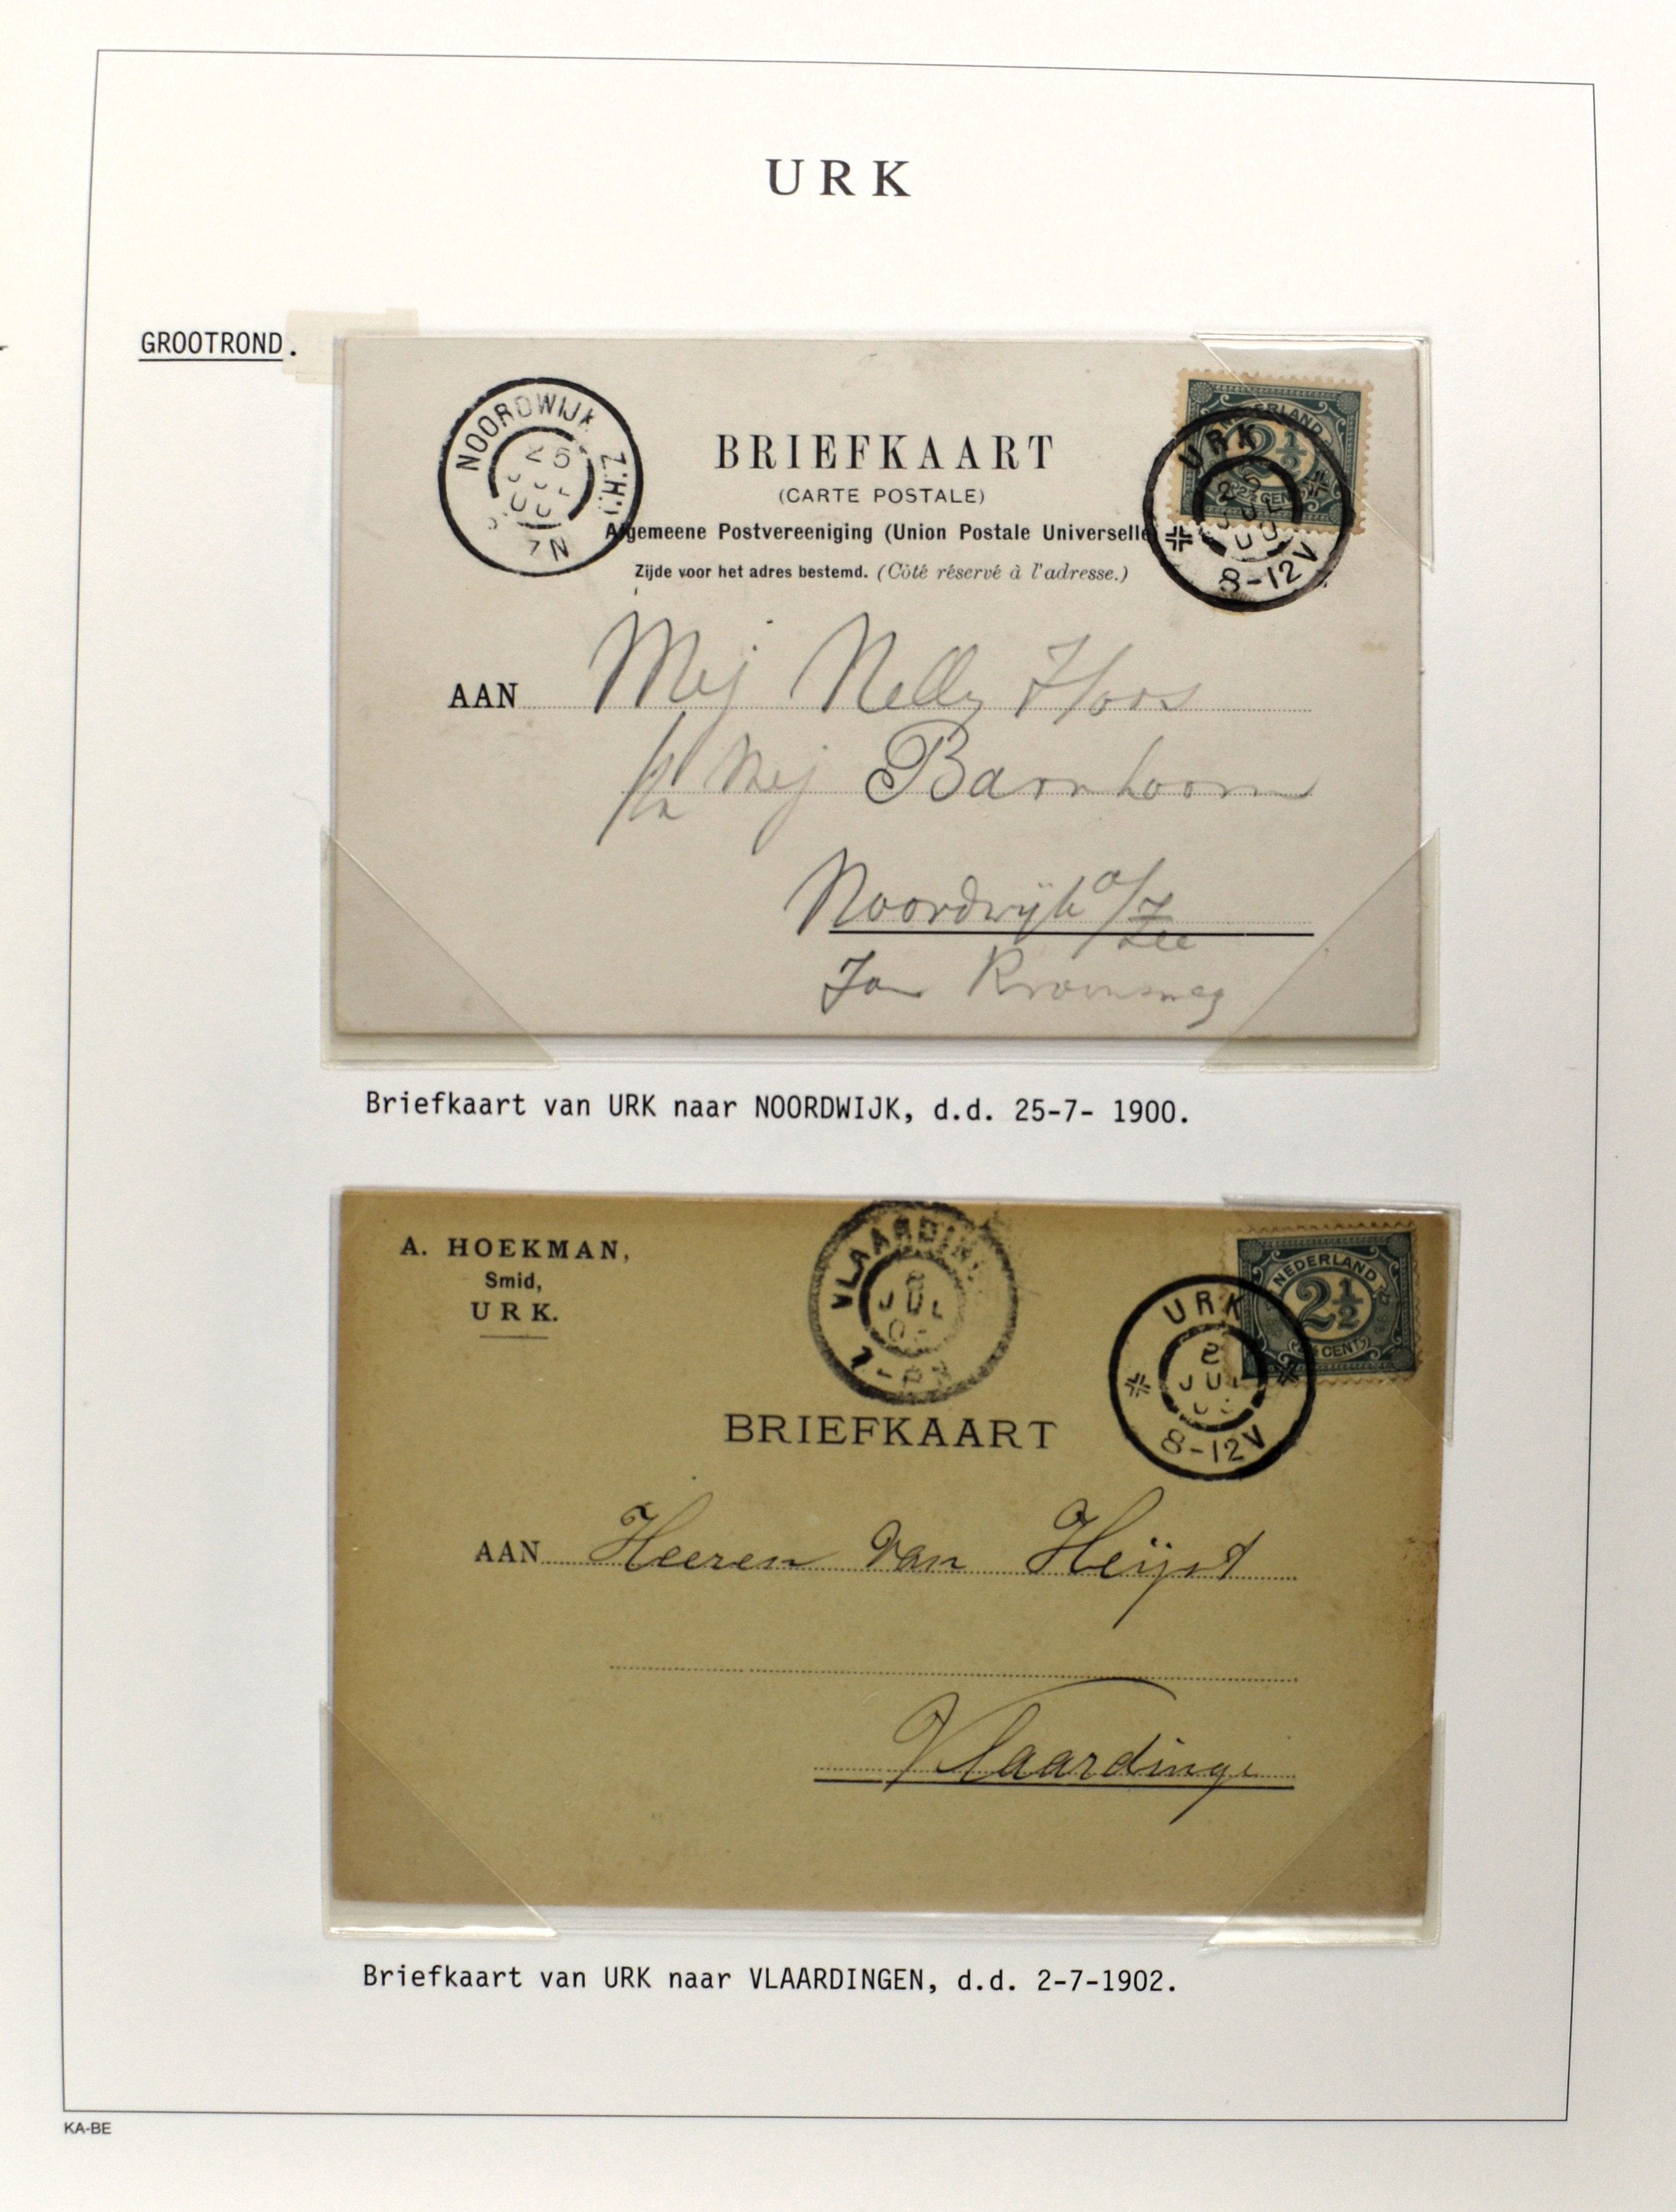 URK
GROOTROND.
NOORDWIJK Z.H.
25
JUL
00
7N
NEDERLAND
2½
2½ CENT
URK
25
JUL
00
8-12V
BRIEFKAART
(CARTE POSTALE)
Algemeene Postvereeniging (Union Postale Universelle
Zijde voor het adres bestemd. (Côté réservé à l'adresse.)
AAN Mej Nelly Hoos
Mej Barnhoorn
Noordwijk a/Zee
Jan
Briefkaart van URK naar NOORDWIJK, d.d. 25-7- 1900.
A. HOEKMAN,
Smid,
URK.
VLAARDIN
JUL
NEDERLAND
2½
CENT
URK
2
JUL
8-12V
BRIEFKAART
AAN Heeren van Heijst
Vlaardinge
Briefkaart van URK naar VLAARDINGEN, d.d. 2-7-1902.
KA-BE